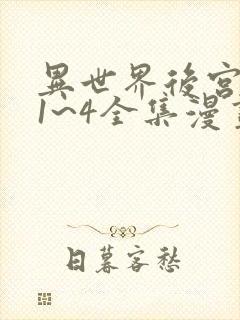 異世界後宮
1~4全集漫
日暮客愁